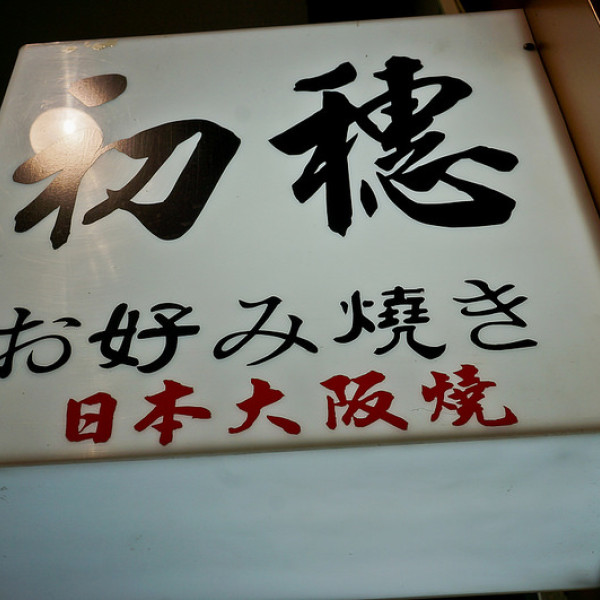 初穗
お好み燒き
日本大阪燒